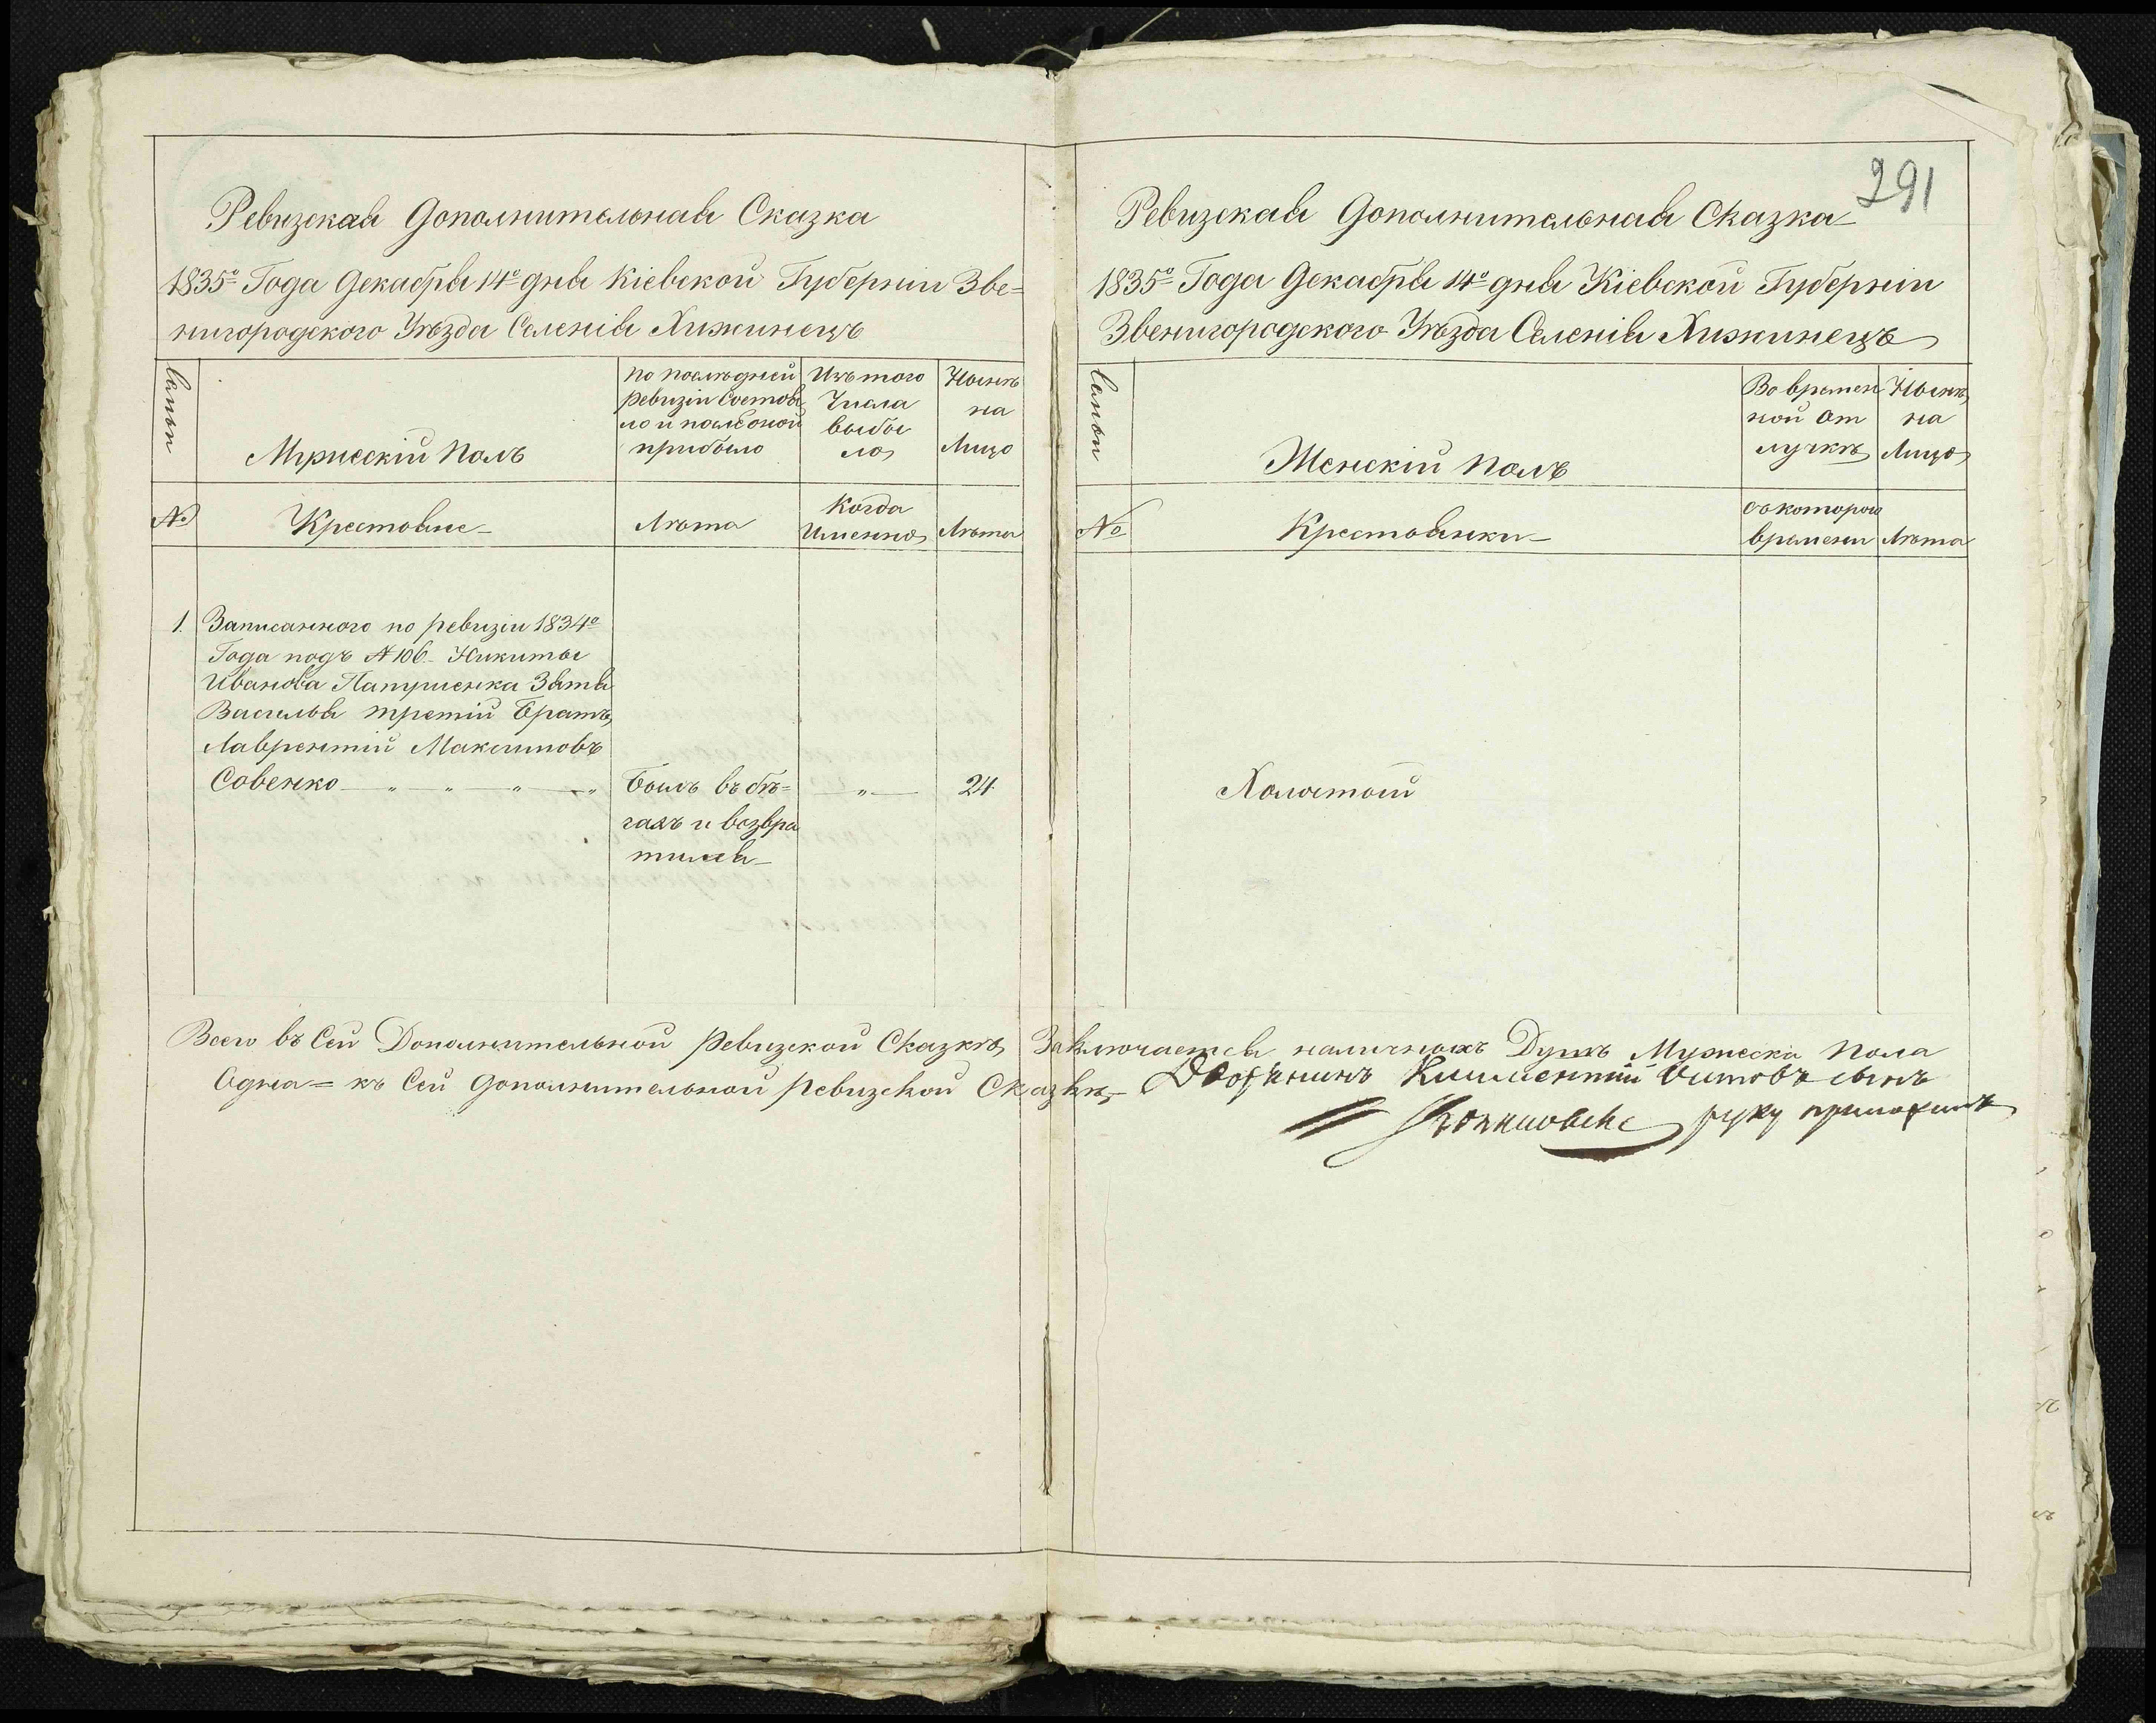 Ревизская Дополнительная Сказка
1835го Года Декабря 14го дня Кіевской Губерніи Зве=
нигородского Уѣзда Селенія Хижинецъ
Мужескій Полъ
по послѣдней ревизіи Состоя ло и послѣ оной прибыло
Изъ того Числа выбы ло
Нынѣ на Лицо
№
Крестьяне
Лѣта
Когда Именно
Лѣта
1. Записанного по ревизіи 1834го
Года подъ № 106 Никиты
Иванова Папушенка Зятя
Василья третій братъ,
Лаврентій Максимовъ
Совенко — „ — „ — „ — „ былъ въ бѣ= — „ — 24
гахъ и возвра
тился
291
Ревизская Дополнительная Сказка
1835го Года Декабря 14го дня Кіевской Губерніи
Звенигородского Уѣзда Селенія Хижинецъ
Женскій Полъ
Во времен ной от лучкѣ
Нынѣ на Лицо
№
Крестьянки
съ которого времени
Лѣта
Холостой
Всего въ Сей Дополнительной ревизской Сказкѣ, Заключается наличныхъ Душъ Мужеска пола
Одна = къ Сей Дополнительной ревизской Сказкѣ, Дворянинъ сынъ
руку приложилъ